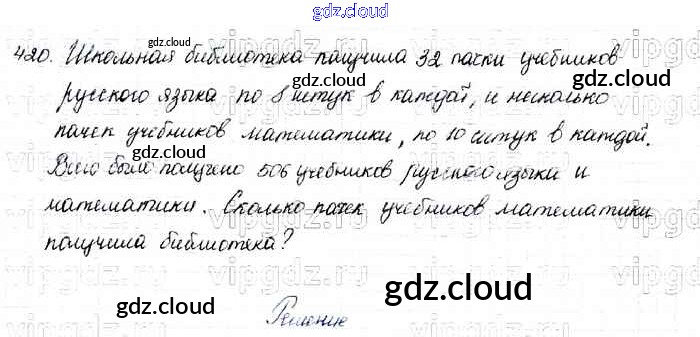 gdz.cloud
420. Школьная библиотека получила 32 пачки учебников
русского языка по 8 штук в каждой, и несколько
пачек учебников математики, по 10 штук в каждой.
Всего было получено 506 учебников русского языка и
математики. Сколько пачек учебников математики
получила библиотека?
Решение
gdz.cloud
gdz.cloud
gdz.cloud
gdz.cloud
gdz.cloud
gdz.cloud
gdz.cloud
gdz.cloud
gdz.cloud